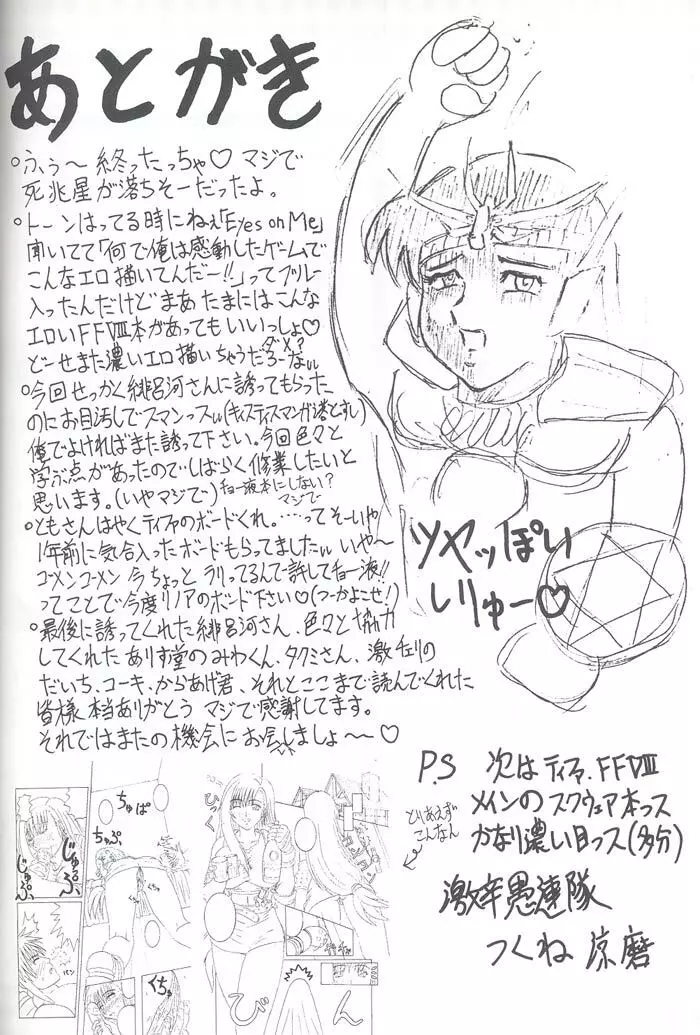 あとがき
○ふぅ〜終ったっちゃ♡マジで
死兆星が落ちそーだったよ。
○トーンはってる時にねぇ「Eyes on Me」
聞いてて「何で俺は感動したゲームで
こんなエロ描いてんだー!!」ってブルー
入ったんだけどまあたまにはこんな
エロいFFⅧ本があってもいいっしょ♡
どーせまた濃いエロ描いちゃうだろーなぃぃ
ダメ?
○今回せっかく緋呂河さんに誘ってもらった
のにお目汚しでスマンっスぃぃ(キスティスマンが落とすし)
俺でよければまた誘って下さい。今回色々と
学ぶ点があったのでしばらく修業したいと
思います。(いやマジで)
チョー液本にしない?
マジで
○ともさんはやくティファのボードくれ。……ってそーいや
1年前に気合入ったボードもらってましたぃぃ いや〜
ゴメンゴメン今ちょっとラリってるんで許してチョー液!!
ってことで今度リノアのボード下さい♡(つーかよこせ!)
○最後に誘ってくれた緋呂河さん、色々と協力
してくれたありす堂のみわくん、タクミさん、激チェリの
だいち、コーキ、からあげ君、それとここまで読んでくれた
皆様本当ありがとう マジで感謝してます。
それではまたの機会にお会いしましょ〜♡
ツヤッぽい
しりゅー♡
P.S 次はティファ、FFⅧ
メインのスクウェア本っス
かなり濃い目っス(多分)
とりあえず
こんなん
激辛愚連隊
つくね涼磨
じゅるっ
じゅぷ、
ちゅぱ
ちゅぷ、
ひっく
パン
くちゅ
びん